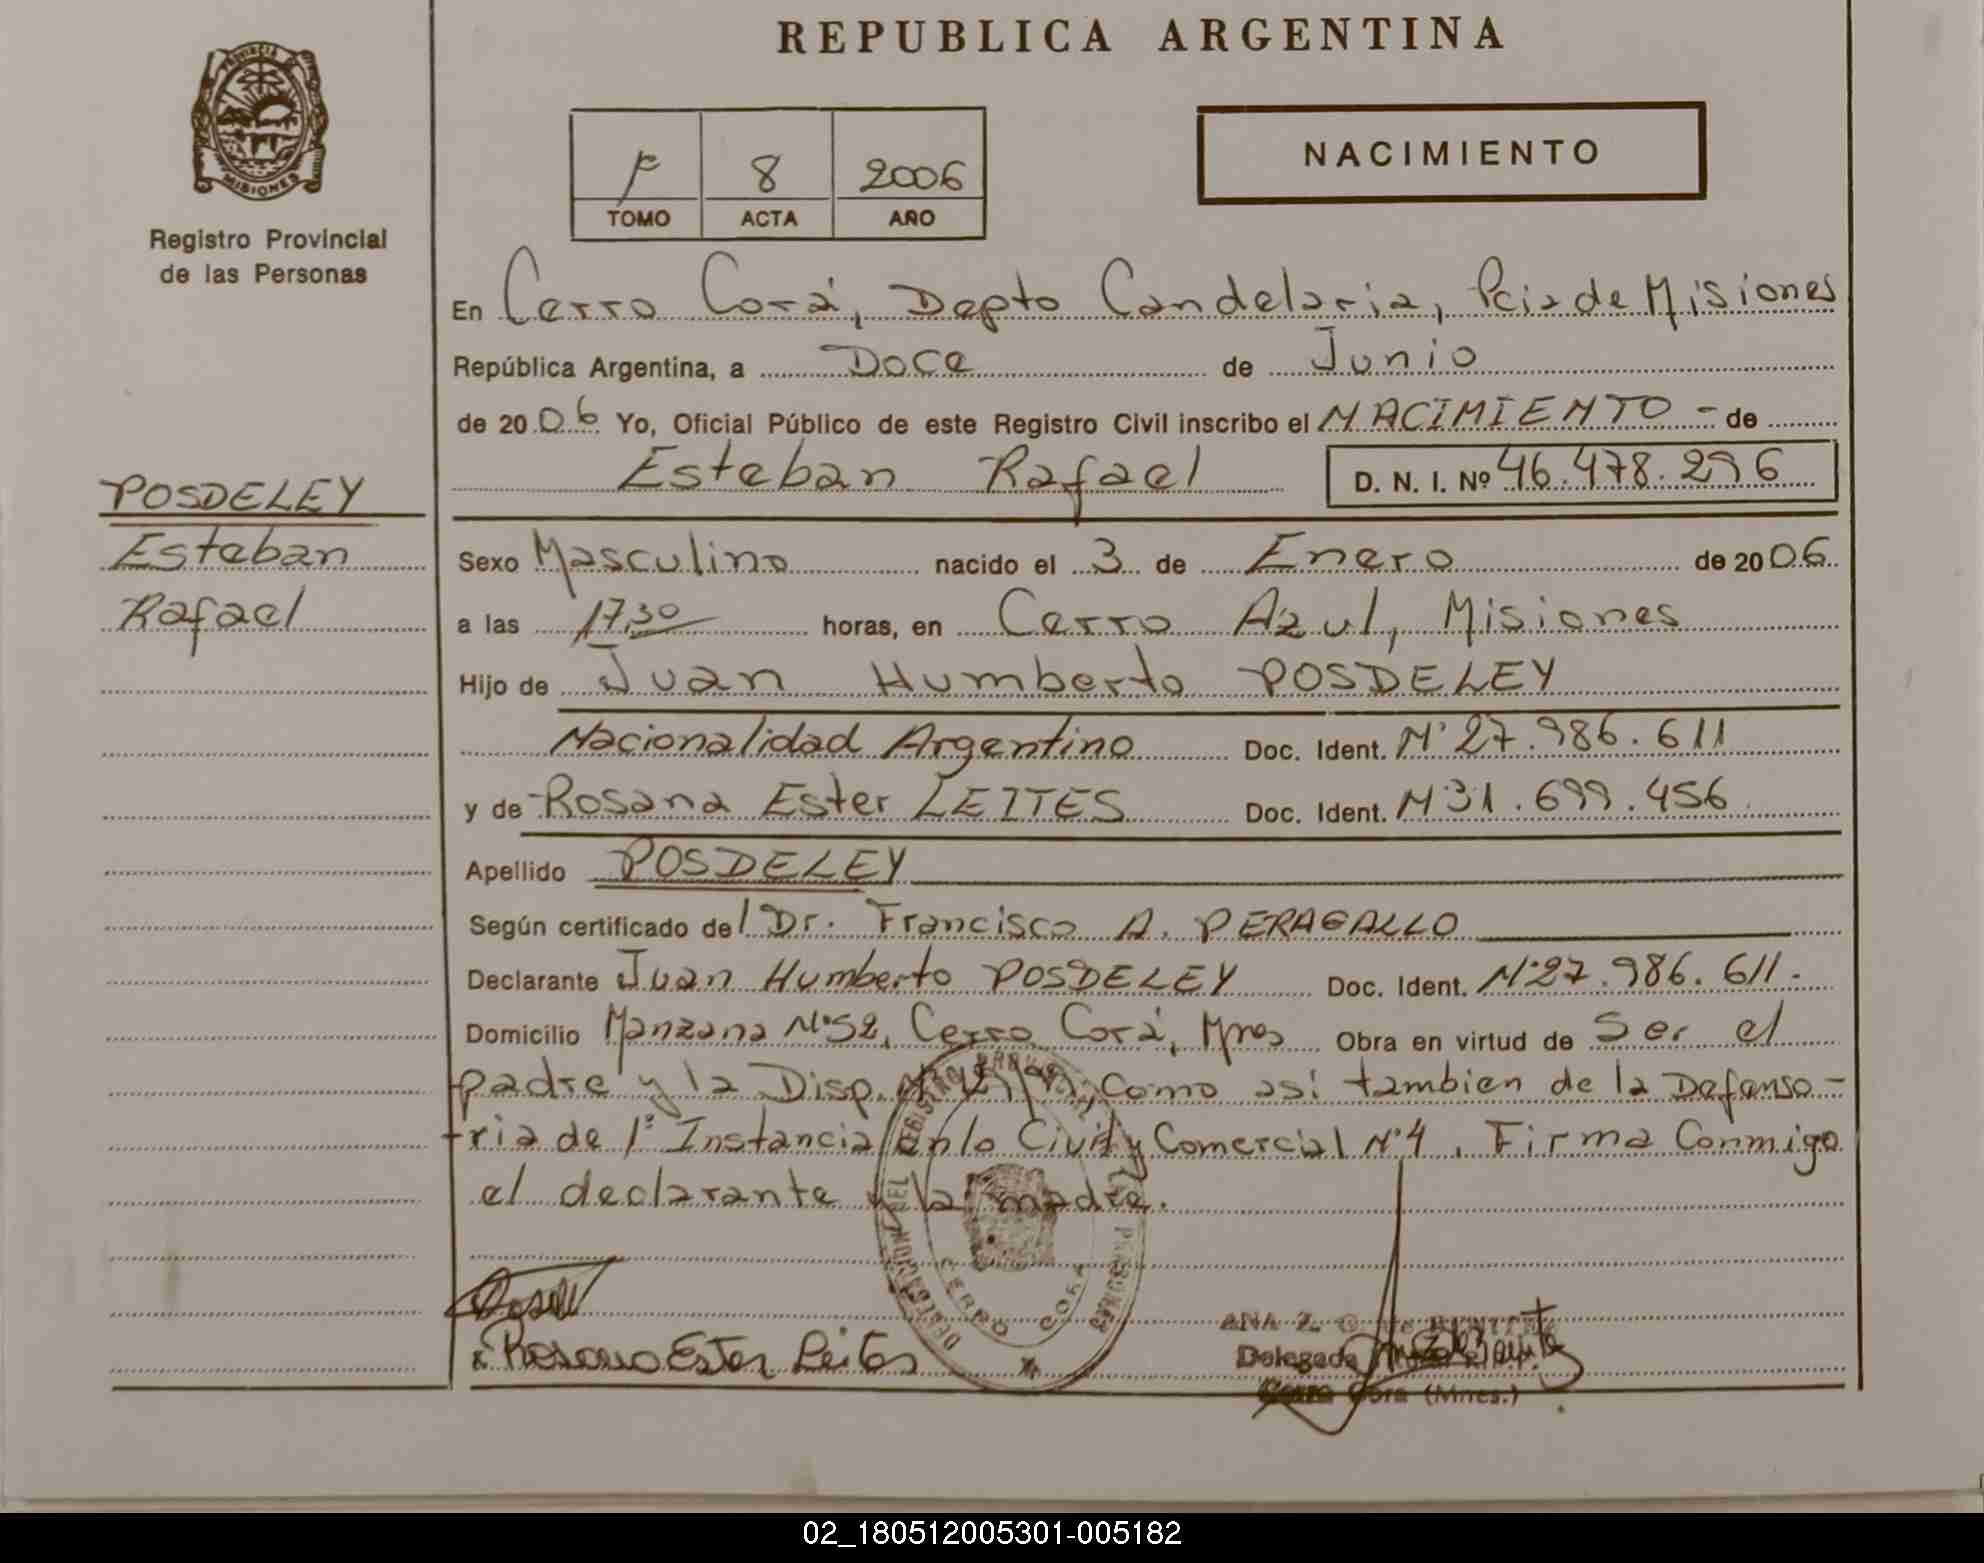 REPUBLICA ARGENTINA
PROVINCIA DE
MISIONES
Registro Provincial
de las Personas
8 2006
TOMO ACTA AÑO
NACIMIENTO
En Cerro Corá, Depto Candelaria, Pcia de Misiones
República Argentina, a Doce de Junio
de 2006 Yo, Oficial Público de este Registro Civil inscribo el NACIMIENTO - de
Esteban Rafael D. N. I. Nº 46.478.296
POSDELEY
Esteban
Rafael
Sexo Masculino nacido el 3 de Enero de 2006
a las 17,30 horas, en Cerro Azul, Misiones
Hijo de Juan Humberto POSDELEY
Nacionalidad Argentino Doc. Ident. Nº 27.986.611
y de Rosana Ester LEITES Doc. Ident. Nº 31.699.456
Apellido POSDELEY
Según certificado del Dr. Francisco A. PERAGALLO
Declarante Juan Humberto POSDELEY Doc. Ident. Nº 27.986.611.
Domicilio Manzana Nº 52, Cerro Corá, Mnes Obra en virtud de Ser el
padre y la Disp. Como asi tambien de la Defenso-
ria de 1º Instancia en lo Civil y Comercial Nº 4. Firma Conmigo
el declarante y la madre.
DELEGACION DEL REGISTRO PERSONAS
CERRO CORA
Rosana Ester Leites
ANA Z.
Delegada
Cerro Cora (Mnes.)
02_180512005301-005182